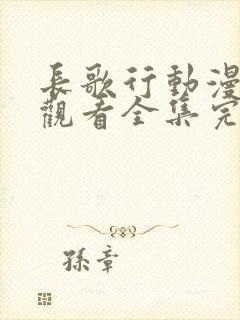 長歌行動漫
觀看全集完
孫章